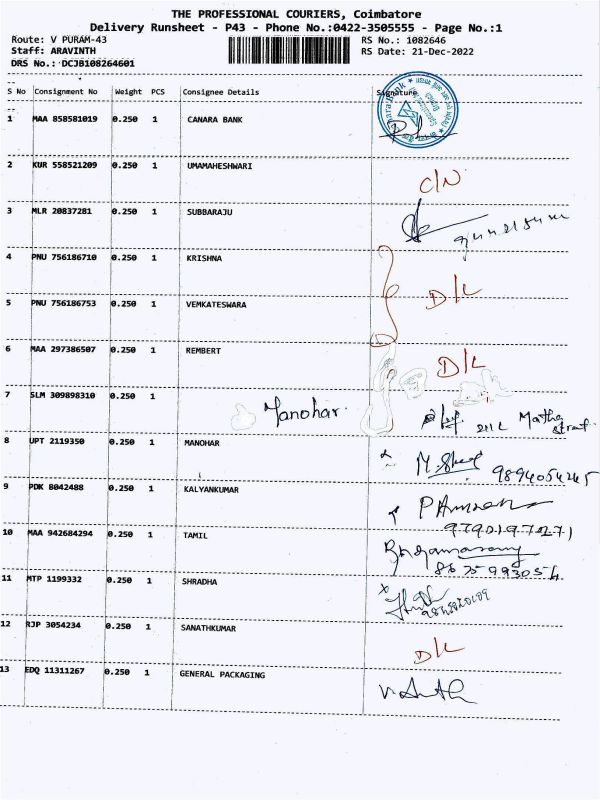 THE PROFESSIONAL COURIERS, Coimbatore
Delivery Runsheet - P43 - Phone No.:0422-3505555 - Page No.:1
Route: V PURAM-43 RS No.: 1082646
Staff: ARAVINTH RS Date: 21-Dec-2022
DRS No.: DCJB108264601
S No Consignment No Weight PCS Consignee Details Signature
1 MAA 858581019 0.250 1 CANARA BANK
2 KUR 558521209 0.250 1 UMAMAHESHWARI C/N
3 MLR 20837281 0.250 1 SUBBARAJU
4 PNU 756186710 0.250 1 KRISHNA
5 PNU 756186753 0.250 1 VEMKATESWARA D/L
6 MAA 297386507 0.250 1 REMBERT D/L
7 SLM 309898310 0.250 1 Manohar
8 UPT 2119350 0.250 1 MANOHAR
9894054245
9 PDK 8042488 0.250 1 KALYANKUMAR
9790197271
10 MAA 942684294 0.250 1 TAMIL
11 MTP 1199332 0.250 1 SHRADHA
12 RJP 3054234 0.250 1 SANATHKUMAR D/L
13 EDQ 11311267 0.250 1 GENERAL PACKAGING